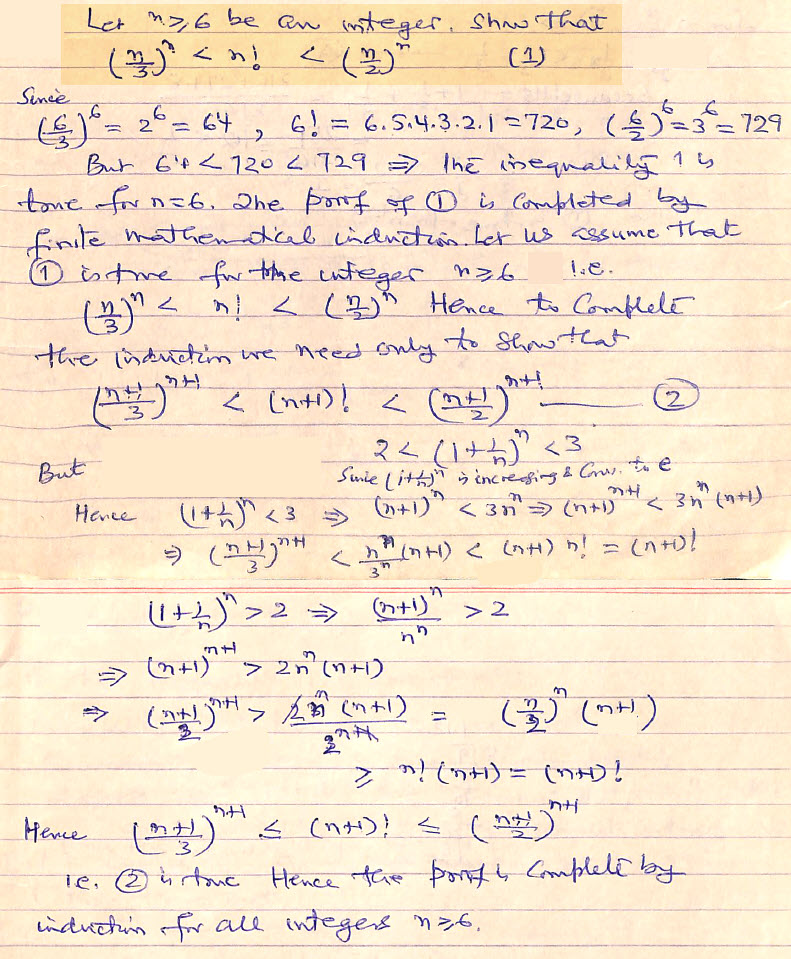 Let n ≥ 6 be an integer. Show that
(n/3)^n < n! < (n/2)^n (1)
Since
(6/3)^6 = 2^6 = 64 , 6! = 6.5.4.3.2.1 = 720, (6/2)^6 = 3^6 = 729
But 64 < 720 < 729 ⇒ The inequality 1 is
true for n=6. The proof of ① is completed by
finite mathematical induction. Let us assume that
① is true for the integer n ≥ 6 i.e.
(n/3)^n < n! < (n/2)^n Hence to Complete
the induction we need only to show that
((n+1)/3)^(n+1) < (n+1)! < ((n+1)/2)^(n+1) ——— ②
2 < (1+1/n)^n < 3
But Since (1+1/n)^n is increasing & Conv. to e
Hence (1+1/n)^n < 3 ⇒ (n+1)^n < 3n^n ⇒ (n+1)^(n+1) < 3n^n (n+1)
⇒ ((n+1)/3)^(n+1) < n^n/3^n (n+1) < (n+1) n! = (n+1)!
(1+1/n)^n > 2 ⇒ (n+1)^n / n^n > 2
⇒ (n+1)^(n+1) > 2n^n (n+1)
⇒ ((n+1)/2)^(n+1) > 2n^n (n+1) / 2^(n+1) = (n/2)^n (n+1)
≥ n! (n+1) = (n+1)!
Hence ((n+1)/3)^(n+1) ≤ (n+1)! ≤ ((n+1)/2)^(n+1)
i.e. ② is true Hence the proof is Complete by
induction for all integers n ≥ 6.